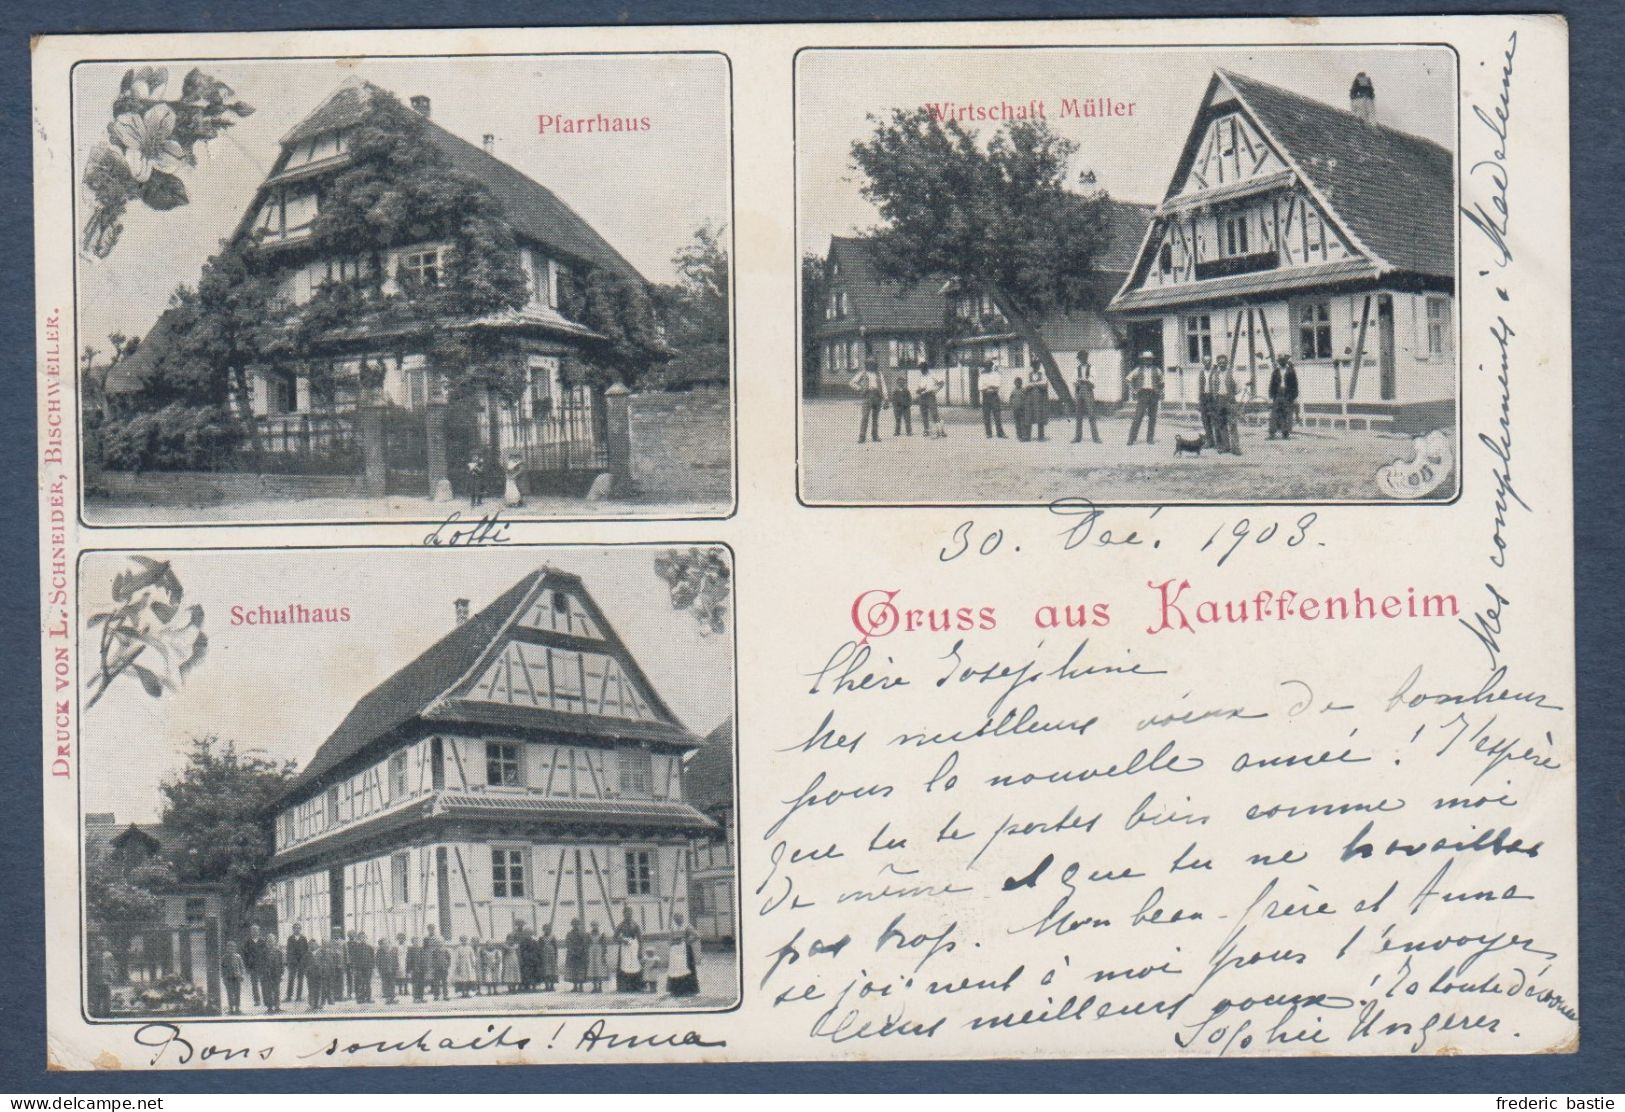 Pfarrhaus
Wirtschaft Müller
DRUCK VON L. SCHNEIDER, BISCHWEILER.
Lotti
Schulhaus
30. Déc. 1903.
Gruss aus Kauffenheim
Chère Joséphine
Mes meilleurs voeux de bonheur
pour la nouvelle année! J'espère
que tu te portes bien comme moi
de même et que tu ne travailles
pas trop. Mon beau-frère et Anna
se joignent à moi pour t'envoyer
leurs meilleurs voeux! Ta toute dévouée
Sophie Ungerer.
Mes compliments à Madeleine
Bons souhaits! Anna
frederic bastie